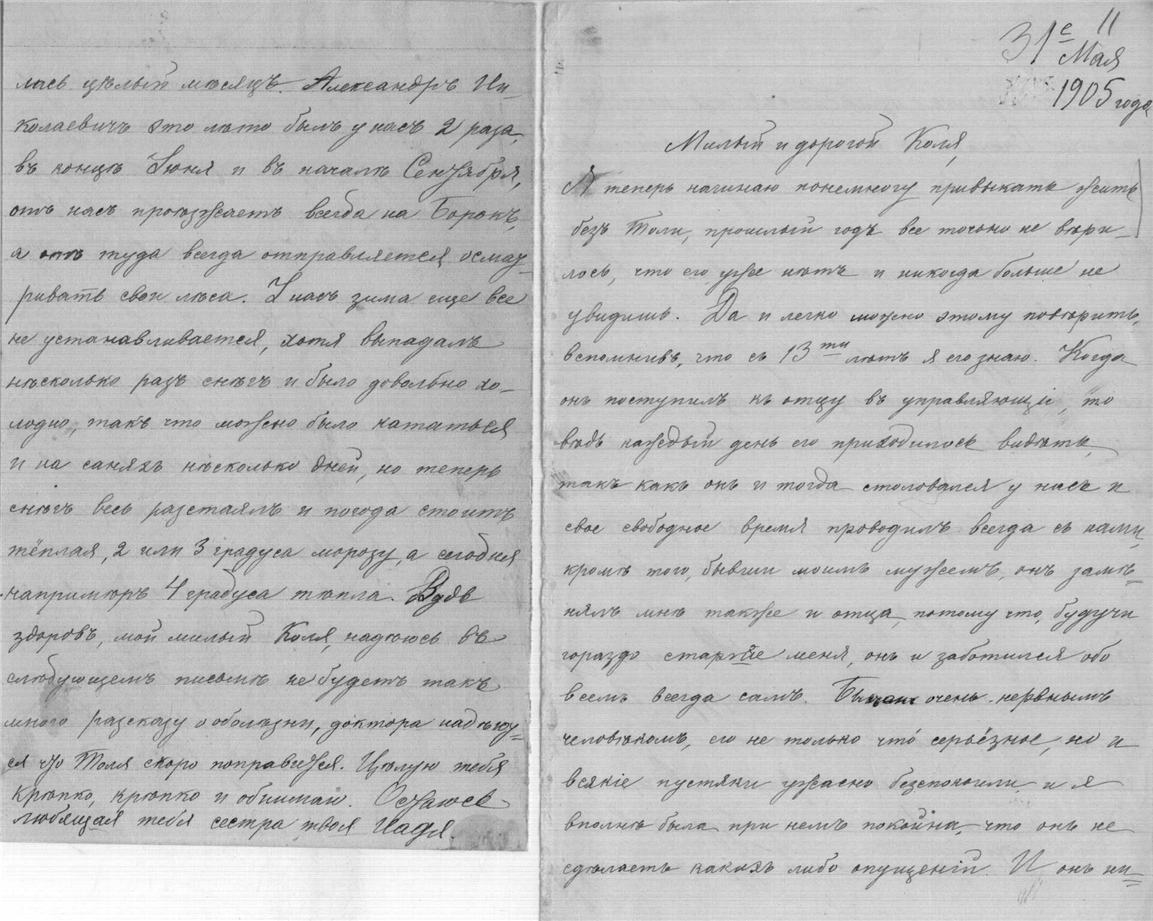 лась цѣлый мѣсяцъ. Александръ Ни-
колаевичъ это лѣто былъ у насъ 2 раза,
въ концѣ Іюня и въ началѣ Сентября,
отъ насъ проѣзжаетъ всегда на Борокъ,
а отъ туда всегда отправляется осмат-
ривать свои лѣса. У насъ зима еще все
не устанавливается, хотя выпадалъ
нѣсколько разъ снѣгъ и было довольно хо-
лодно, такъ что можно было кататься
и на саняхъ нѣсколько дней, но теперь
снѣгъ весь разстаялъ и погода стоитъ
тёплая, 2 или 3 градуса морозу, а сегодня
напримѣръ 4 градуса тепла. Будь
здоровъ, мой милый Коля, надѣюсь въ
слѣдующемъ письмѣ не будетъ такъ
много разсказу о болѣзни, доктора надѣют-
ся что Толя скоро поправится. Цѣлую тебя
крѣпко, крѣпко и обнимаю. Остаюсь
любящая тебя сестра твоя Надя.
11
31е Мая
1905 года
Милый и дорогой Коля,
Я теперь начинаю понемногу привыкать жить
безъ Толи, прошлый годъ все точно не вѣри-
лось, что его уже нѣтъ и никогда больше не
увидишь. Да и легко можно этому повѣрить,
вспомнивъ, что съ 13ти лѣтъ я его знаю. Когда
онъ поступилъ къ отцу въ управляющіе, то
вѣдь каждый день его приходилось видѣть,
такъ какъ онъ и тогда столовался у насъ и
свое свободное время проводилъ всегда съ нами,
кромѣ того, бывши моимъ мужемъ, онъ замѣ-
нялъ мнѣ также и отца, потому что, будучи
гораздо старше меня, онъ и заботился обо
всемъ всегда самъ. очень нервнымъ
человѣкомъ, его не только что́ серьёзное, но и
всякіе пустяки ужасно безпокоили и я
вполнѣ была при немъ покойна, что онъ не
сдѣлаетъ какихъ либо опущеній. И онъ ни-